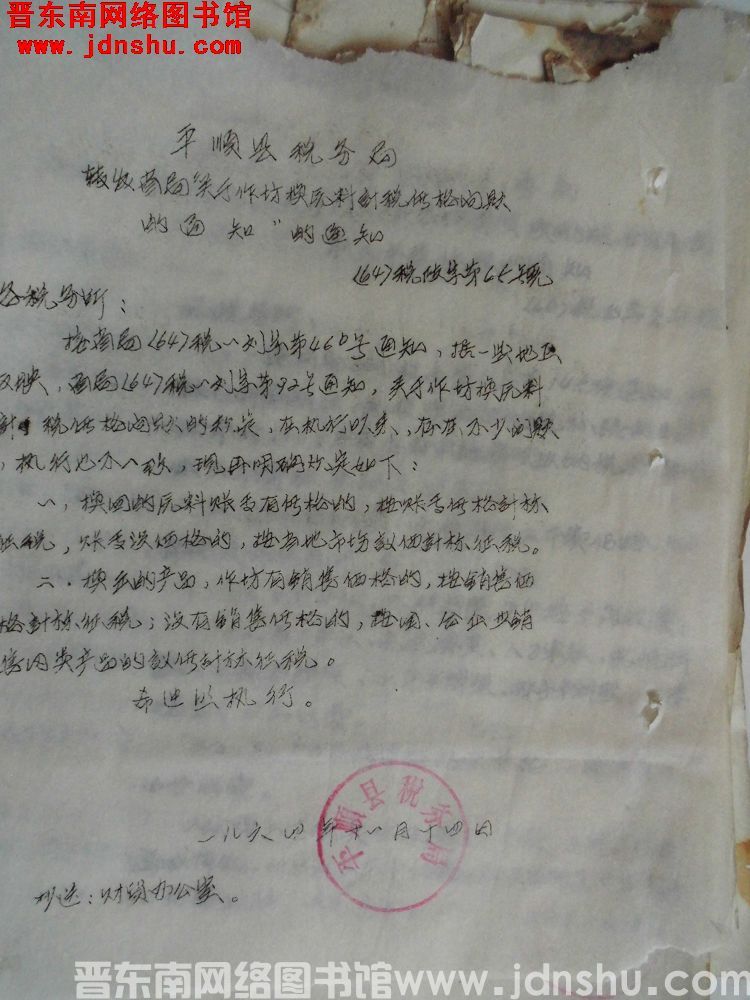 晋东南网络图书馆
www.jdnshu.com
平顺县税务局
转发省局“关于作坊换原料计税价格问题
的通知”的通知
(64)税政字第65号
各税务所:
按省局(64)税一刘字第460号通知,据一些地区
反映,省局(64)税一刘字第92号通知,关于作坊换原料
计税价格问题的规定,在执行以来,存在不少问题
,执行也不一致,现再明确规定如下:
一、换回的原料账上有价格的,按账上价格計标
征税,账上没価格的,按当地市场牧価計标征税。
二、换出的产品,作坊有銷售価格的,按銷售価
格計标征税;没有銷售价格的,按国、合企业銷
售同类产品的牧价計标征税。
希迠照执行。
一九六四年十一月十四日
平顺县税务局
抄送:财贸办公室。
晋东南网络图书馆www.jdnshu.com